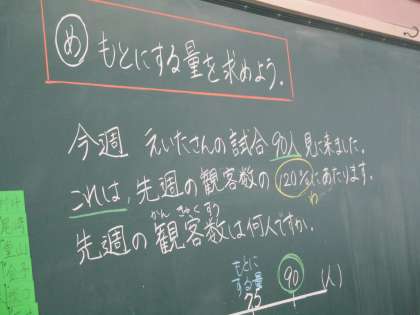 め もとにする量を求めよう。
今週 えいたさんの試合 90人 見に来ました。
これは、先週の観客数の 120%にあたります。
わ
かん きゃく すう
先週の観客数は何人ですか。
もとに
する量
75 90 (人)